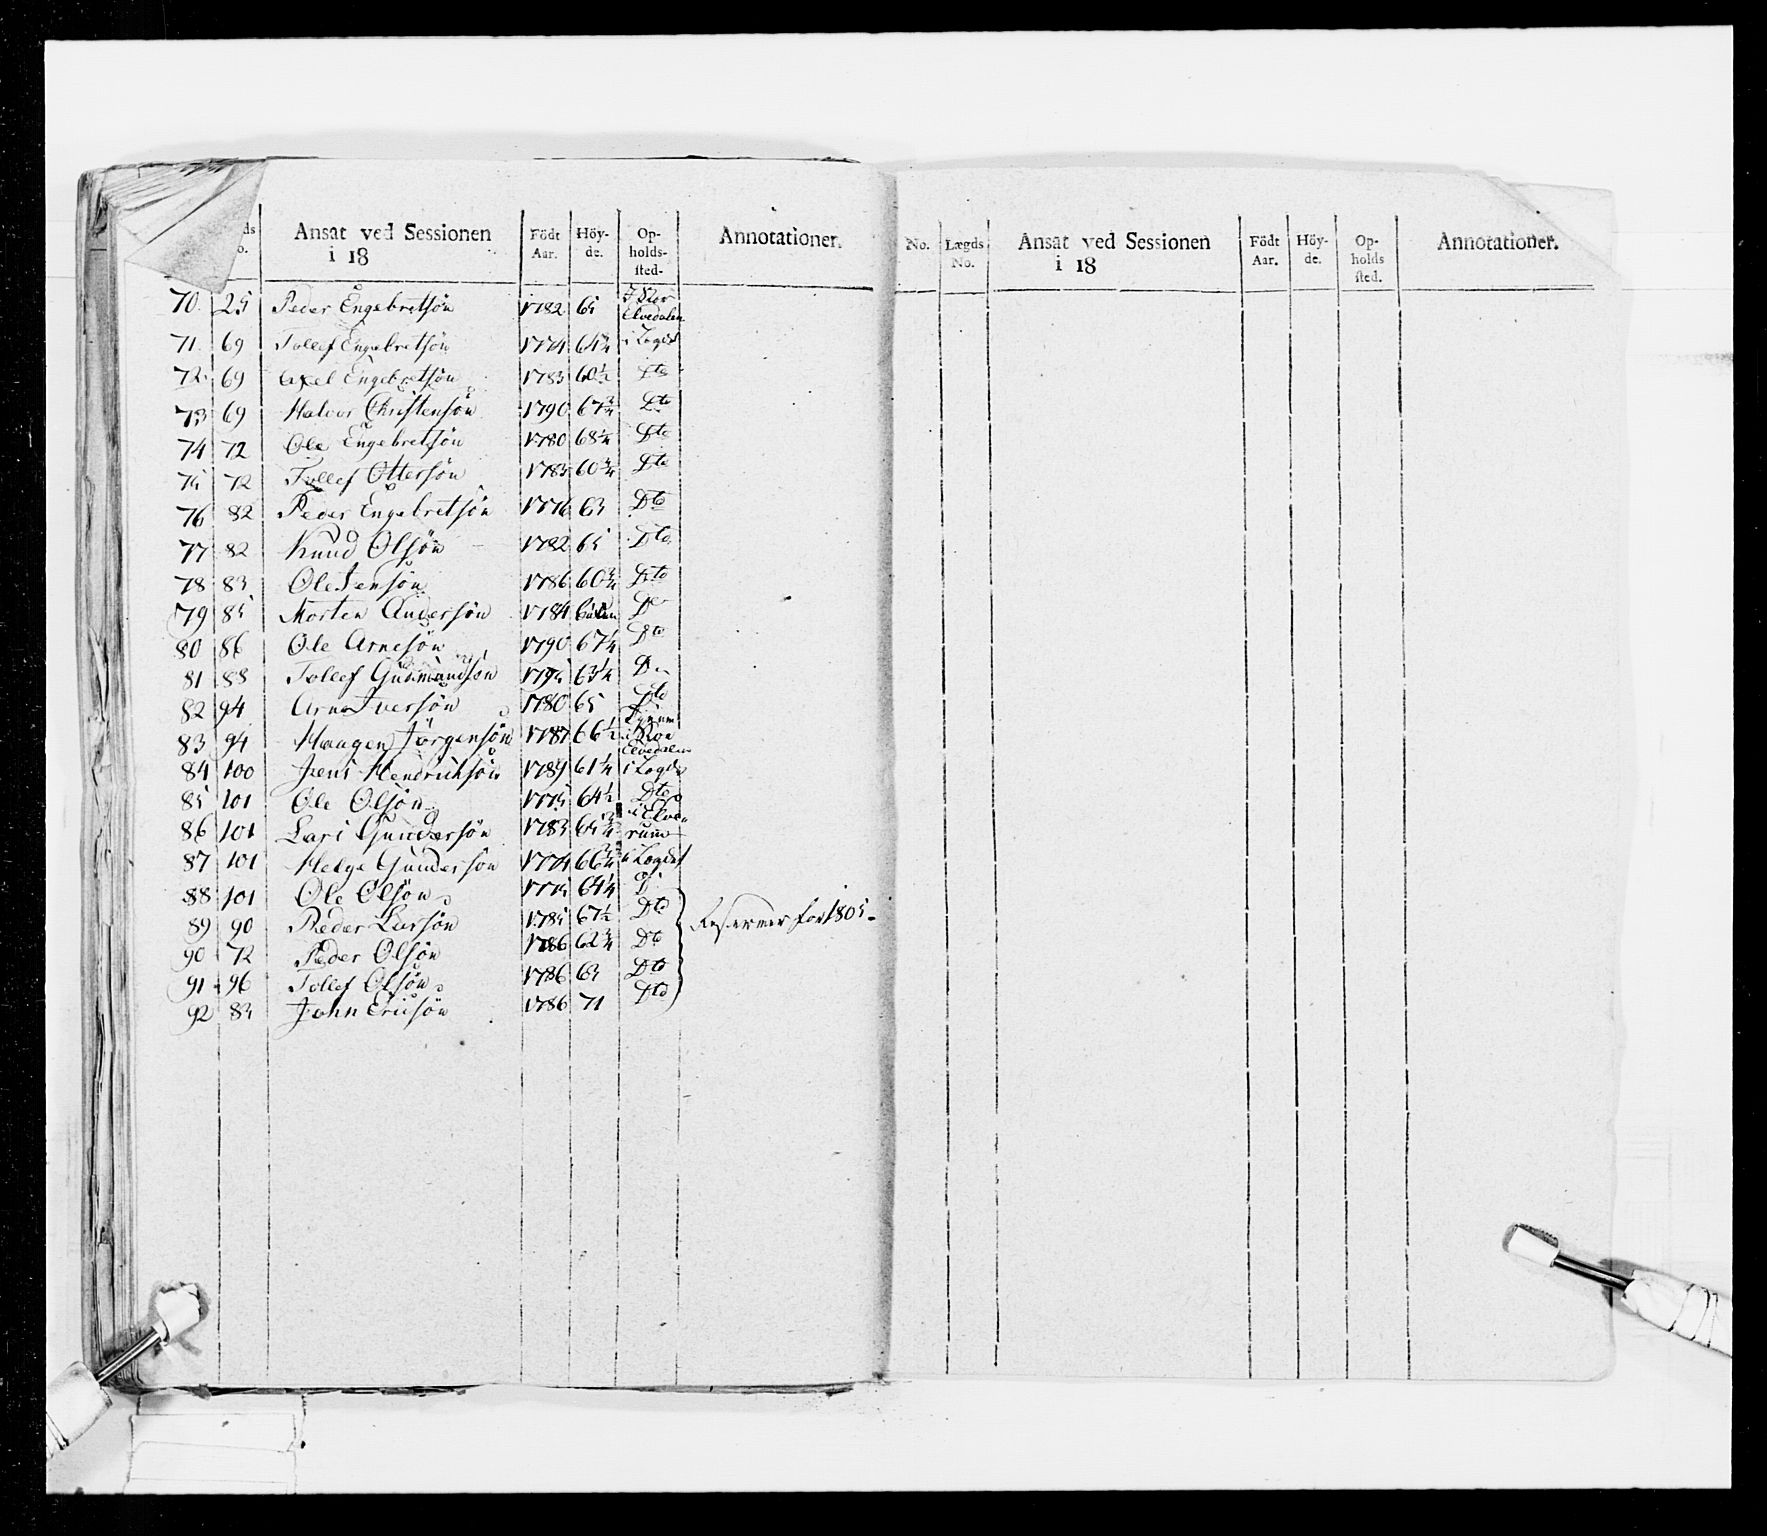 ds
o.
Ansat ved Sessionen
i 18
Födt
Aar.
Höy-
de.
Op-
holds-
sted-
Annotationer.
70. 25 Peder Engebretsön 1782 65 I Stor
Elvedalen
71. 69 Tollef Engebretsön 1774 64¾ i Lægdet
72. 69 Axel Engebretsön 1783 60½ Dto
73 69 Halvor Christensön 1790 67¾ Dto
74 72 Ole Engebretsön 1780 68¼ Dto
75 72 Tollef Ottersön 1785 60¾ Dto
76 82 Peder Engebretsön 1776 63 Dto
77 82 Knud Olsön 1782 65 Dto
78 83 Ole Jensön 1786 60¾ Dto
79 85 Morten Andersön 1784 Do
80 86 Ole Arnesön 1790 67¼ Dto
81 88 Tollef Gudmundsön 63¼ Do
82 94 Arne Iversön 1780 65 Dto
83 94 Haagen Jörgensön 1787 66½
Elvedalen
84 100 Jens Hendrichsön 1789 61¼ i Lægdet
85 101 Ole Olsön 1775 64½ Dto
86 101 Lars Gundersön 1783 i Elve
rum
87 101 Helge Gundersön 1774 66¾ i Lægdet
88 101 Ole Olsön 1775 64¼ D
89 90 Peder Larsön 1785 67½ Dto Reserver for 1805-
90 72 Peder Olsön 1786 62¾ Dto
91 96 Tollef Olsön 1786 63 Dto
92 83 John Ericsön 1786 71 Dto
No.
Lægds
No.
Ansat ved Sessionen
i 18
Födt
Aar.
Höy-
de.
Op-
holds
sted.
Annotationer.